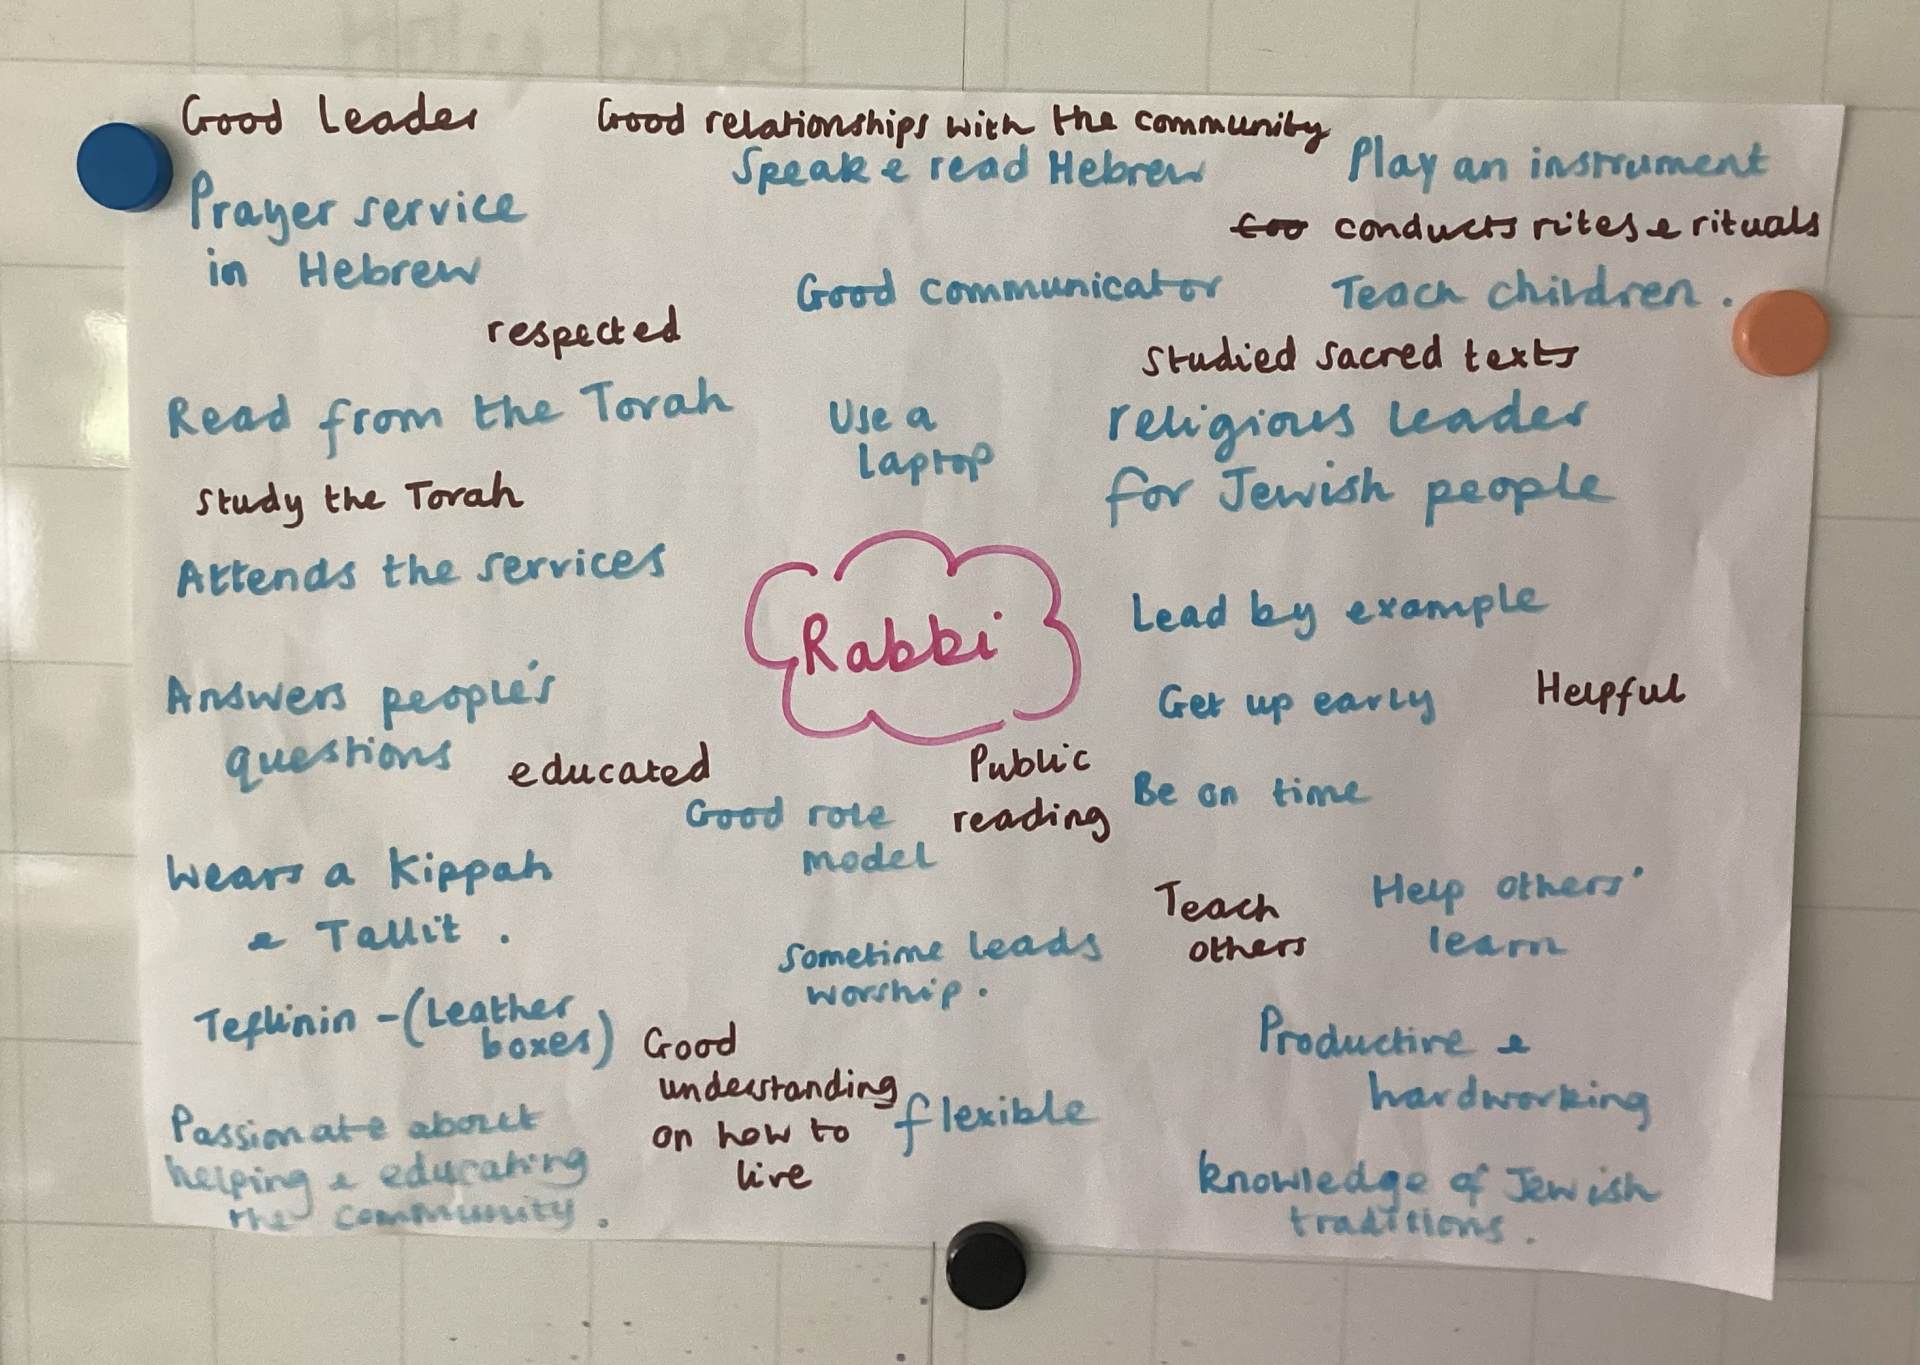 Good leader
Good relationships with the community
Speak & read Hebrew
Play an instrument
Prayer service
in Hebrew
conducts rites & rituals
Good communicator
Teach children.
respected
studied sacred texts
Read from the Torah
Use a
laptop
religious leader
for Jewish people
study the Torah
Attends the services
Rabbi
Lead by example
Answers people's
questions
Get up early
Helpful
educated
Public
reading
Be on time
Good role
model
Wears a Kippah
& Tallit.
Teach
others
Help others'
learn
sometime leads
worship.
Teflinin - (Leather
boxes)
Good
understanding
on how to
live
flexible
Productive &
hardworking
Passionate about
helping & educating
the community.
knowledge of Jewish
traditions.